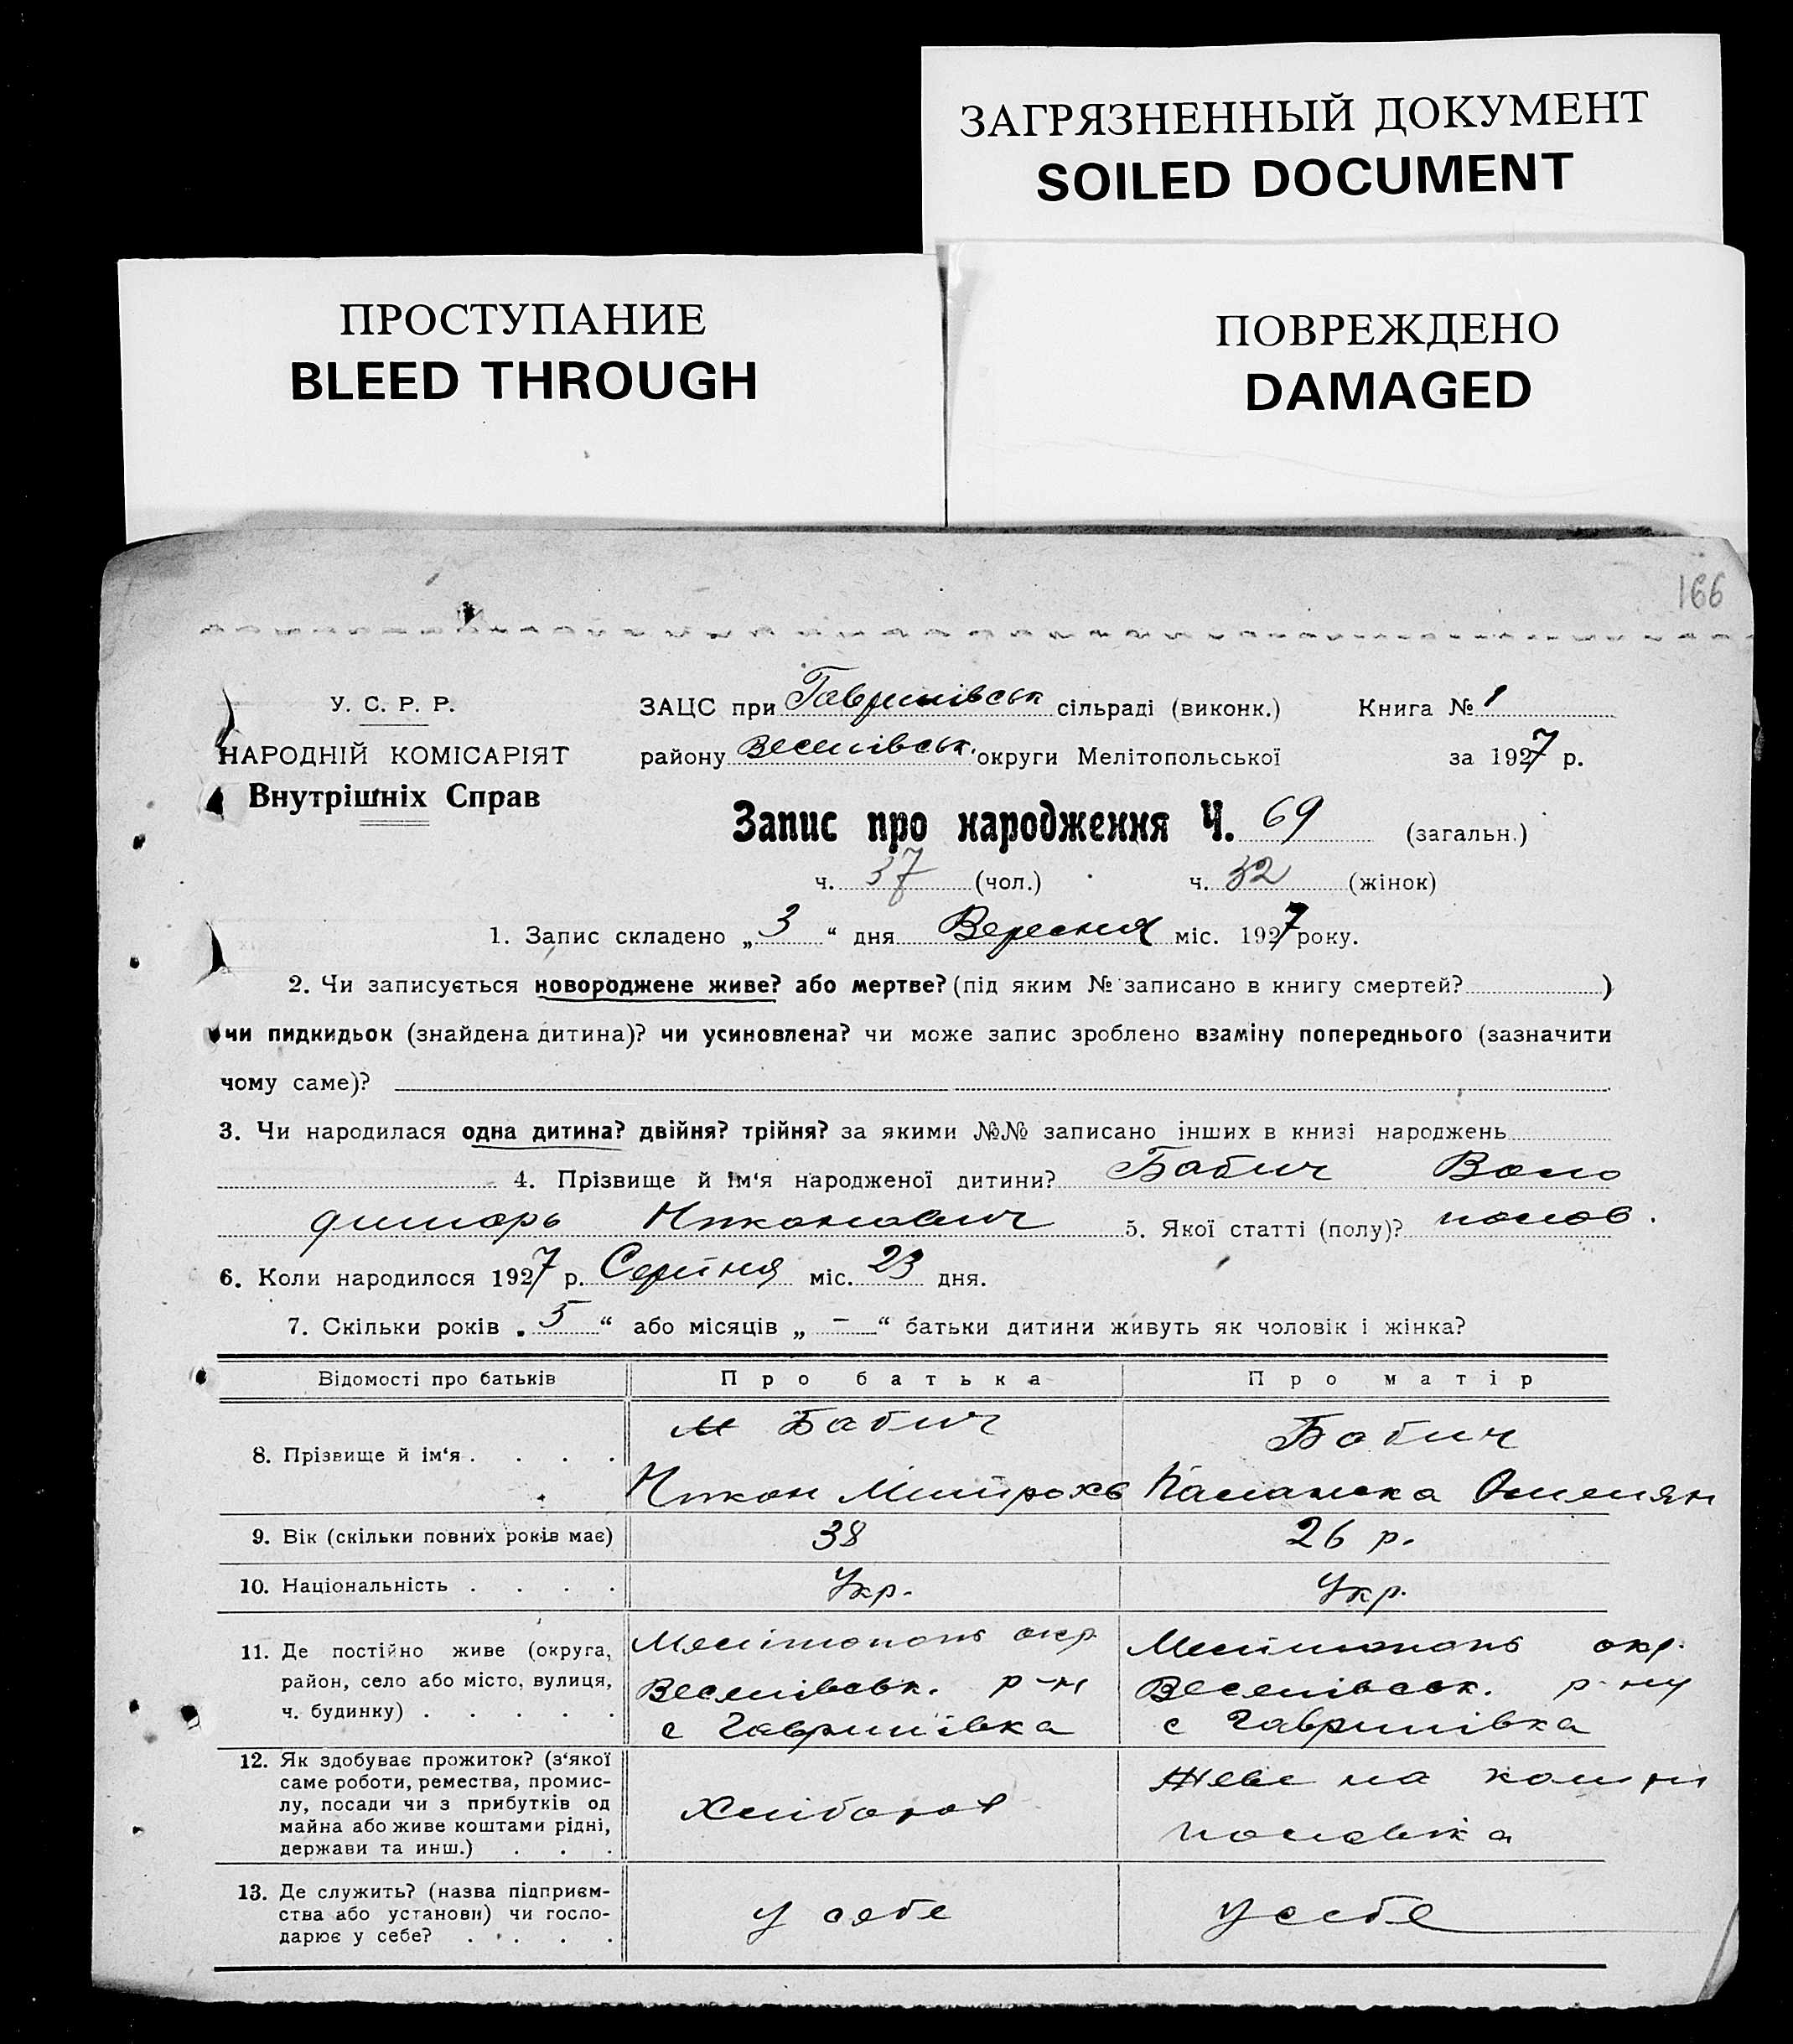 ЗАГРЯЗНЕННЫЙ ДОКУМЕНТ
SOILED DOCUMENT
ПРОСТУПАНИЕ
BLEED THROUGH
ПОВРЕЖДЕНО
DAMAGED
166
У. С. Р. Р.
НАРОДНІЙ КОМІСАРІЯТ
Внутрішніх Справ
ЗАЦС при Гаврилівськ сільраді (виконк.) Книга № 1
району Веселівськ. округи Мелітопольської за 1927 р.
Запис про народження Ч. 69 (загальн.)
ч. 37 (чол.) ч. 32 (жінок)
1. Запис складено „ 3 “ дня Вересня міс. 1927 року.
2. Чи записується новороджене живе? або мертве? (під яким № записано в книгу смертей? )
чи пидкидьок (знайдена дитина)? чи усиновлена? чи може запис зроблено взаміну попереднього (зазначити
чому саме)?
3. Чи народилася одна дитина? двійня? трійня? за якими №№ записано інших в книзі народжень
4. Прізвище й ім‘я народженої дитини? Бабич Воло
димарь Никонович 5. Якої статті (полу)? чолов.
6. Коли народилося 1927 р. Серпня міс. 23 дня.
7. Скільки років „ 5 “ або місяців „ – “ батьки дитини живуть як чоловік і жінка?
Відомості про батьків Про батька Про матір
8. Прізвище й ім‘я . . . . Бабич Бабич
Никон Митрохв Палажка Омелян
9. Вік (скільки повних років має) 38 26 р.
10. Національність . . . . Укр. Укр.
11. Де постійно живе (округа, Мелітополь окр. Мелітополь окр.
район, село або місто, вулиця, Веселівськ. р-н Веселівськ. р-ну
ч. будинку) . . . . . с Гаврилівка с Гаврилівка
12. Як здобуває прожиток? (з‘якої
саме роботи, ремества, промис-
лу, посади чи з прибутків од
майна або живе коштами рідні,
держави та инш.) . . .
Хлібороб
Живе на кошти
чоловіка
13. Де служить? (назва підприєм-
ства або установи) чи госпо-
дарює у себе? . . . . .
у себе у себе